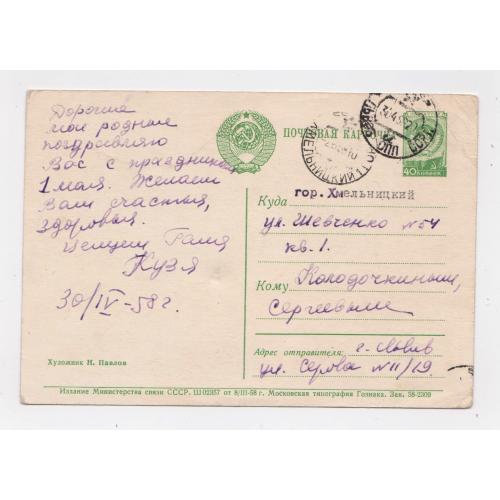 Дорогие
мои родные
поздравляю
Вас с праздником
1 мая. Желаем
Вам счастья,
здоровья.
Целуем Галя
Кузя
30/IV-58 г.
Художник Н. Павлов
ПОЧТОВАЯ КАРТОЧКА
40 КОПЕЕК
ХМЕЛЬНИЦКИЙ
СССР
гор. Хмельницкий
Куда
ул. Шевченко № 54
кв. 1.
Кому Колодочкиным,
Сергеевым
Адрес отправителя: г. Львів
ул. Серова № 11/19
Издание Министерства связи СССР. Ш 02357 от 8/III-58 г. Московская типография Гознака. Зак. 58-2309